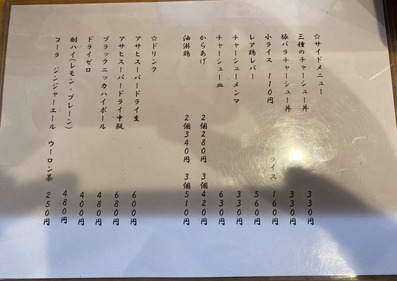 ☆サイドメニュー
三種のチャーシュー丼 330円
豚バラチャーシュー丼 330円
小ライス 110円 イス 160円
レア鶏レバー 560円
チャーシューメンマ 330円
チャーシュー皿 630円
からあげ 2個280円 3個420円
油淋鶏 2個340円 3個510円
☆ドリンク
アサヒスーパードライ生 600円
アサヒスーパードライ中瓶 680円
ブラックニッカハイボール 480円
ドライゼロ 400円
酎ハイ(レモン・プレーン) 480円
コーラ ジンジャーエール ウーロン茶 250円